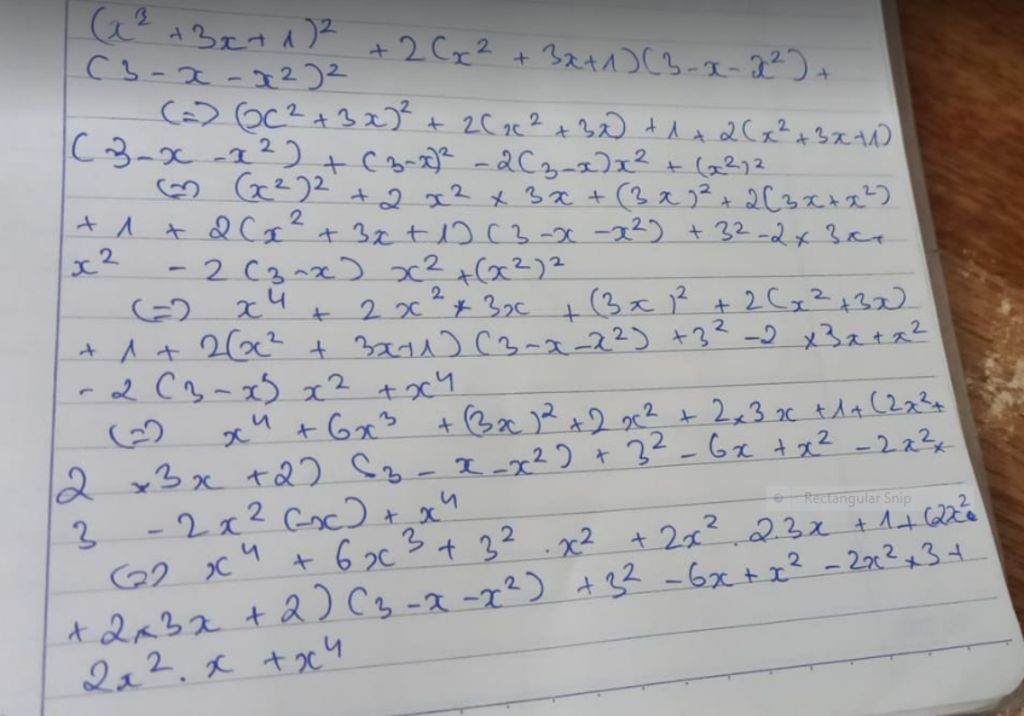 (x² + 3x + 1)² + 2(x² + 3x + 1)(3 - x - x²) +
(3 - x - x²)²
(=) (x² + 3x)² + 2(x² + 3x) + 1 + 2(x² + 3x + 1)
(3 - x - x²) + (3 - x)² - 2(3 - x)x² + (x²)²
(=) (x²)² + 2 x² × 3x + (3x)² + 2(3x + x²)
+ 1 + 2(x² + 3x + 1)(3 - x - x²) + 3² - 2 × 3x +
x² - 2(3 - x) x² + (x²)²
(=) x⁴ + 2x² × 3x + (3x)² + 2(x² + 3x)
+ 1 + 2(x² + 3x + 1)(3 - x - x²) + 3² - 2 × 3x + x²
- 2(3 - x) x² + x⁴
(=) x⁴ + 6x³ + (3x)² + 2x² + 2 × 3x + 1 + (2x² +
2 × 3x + 2)(3 - x - x²) + 3² - 6x + x² - 2x² ×
3 - 2x²(-x) + x⁴
(=) x⁴ + 6x³ + 3² . x² + 2x² . 2.3x + 1 + (2x²
+ 2 × 3x + 2)(3 - x - x²) + 3² - 6x + x² - 2x² × 3 +
2x² . x + x⁴
Rectangular Snip